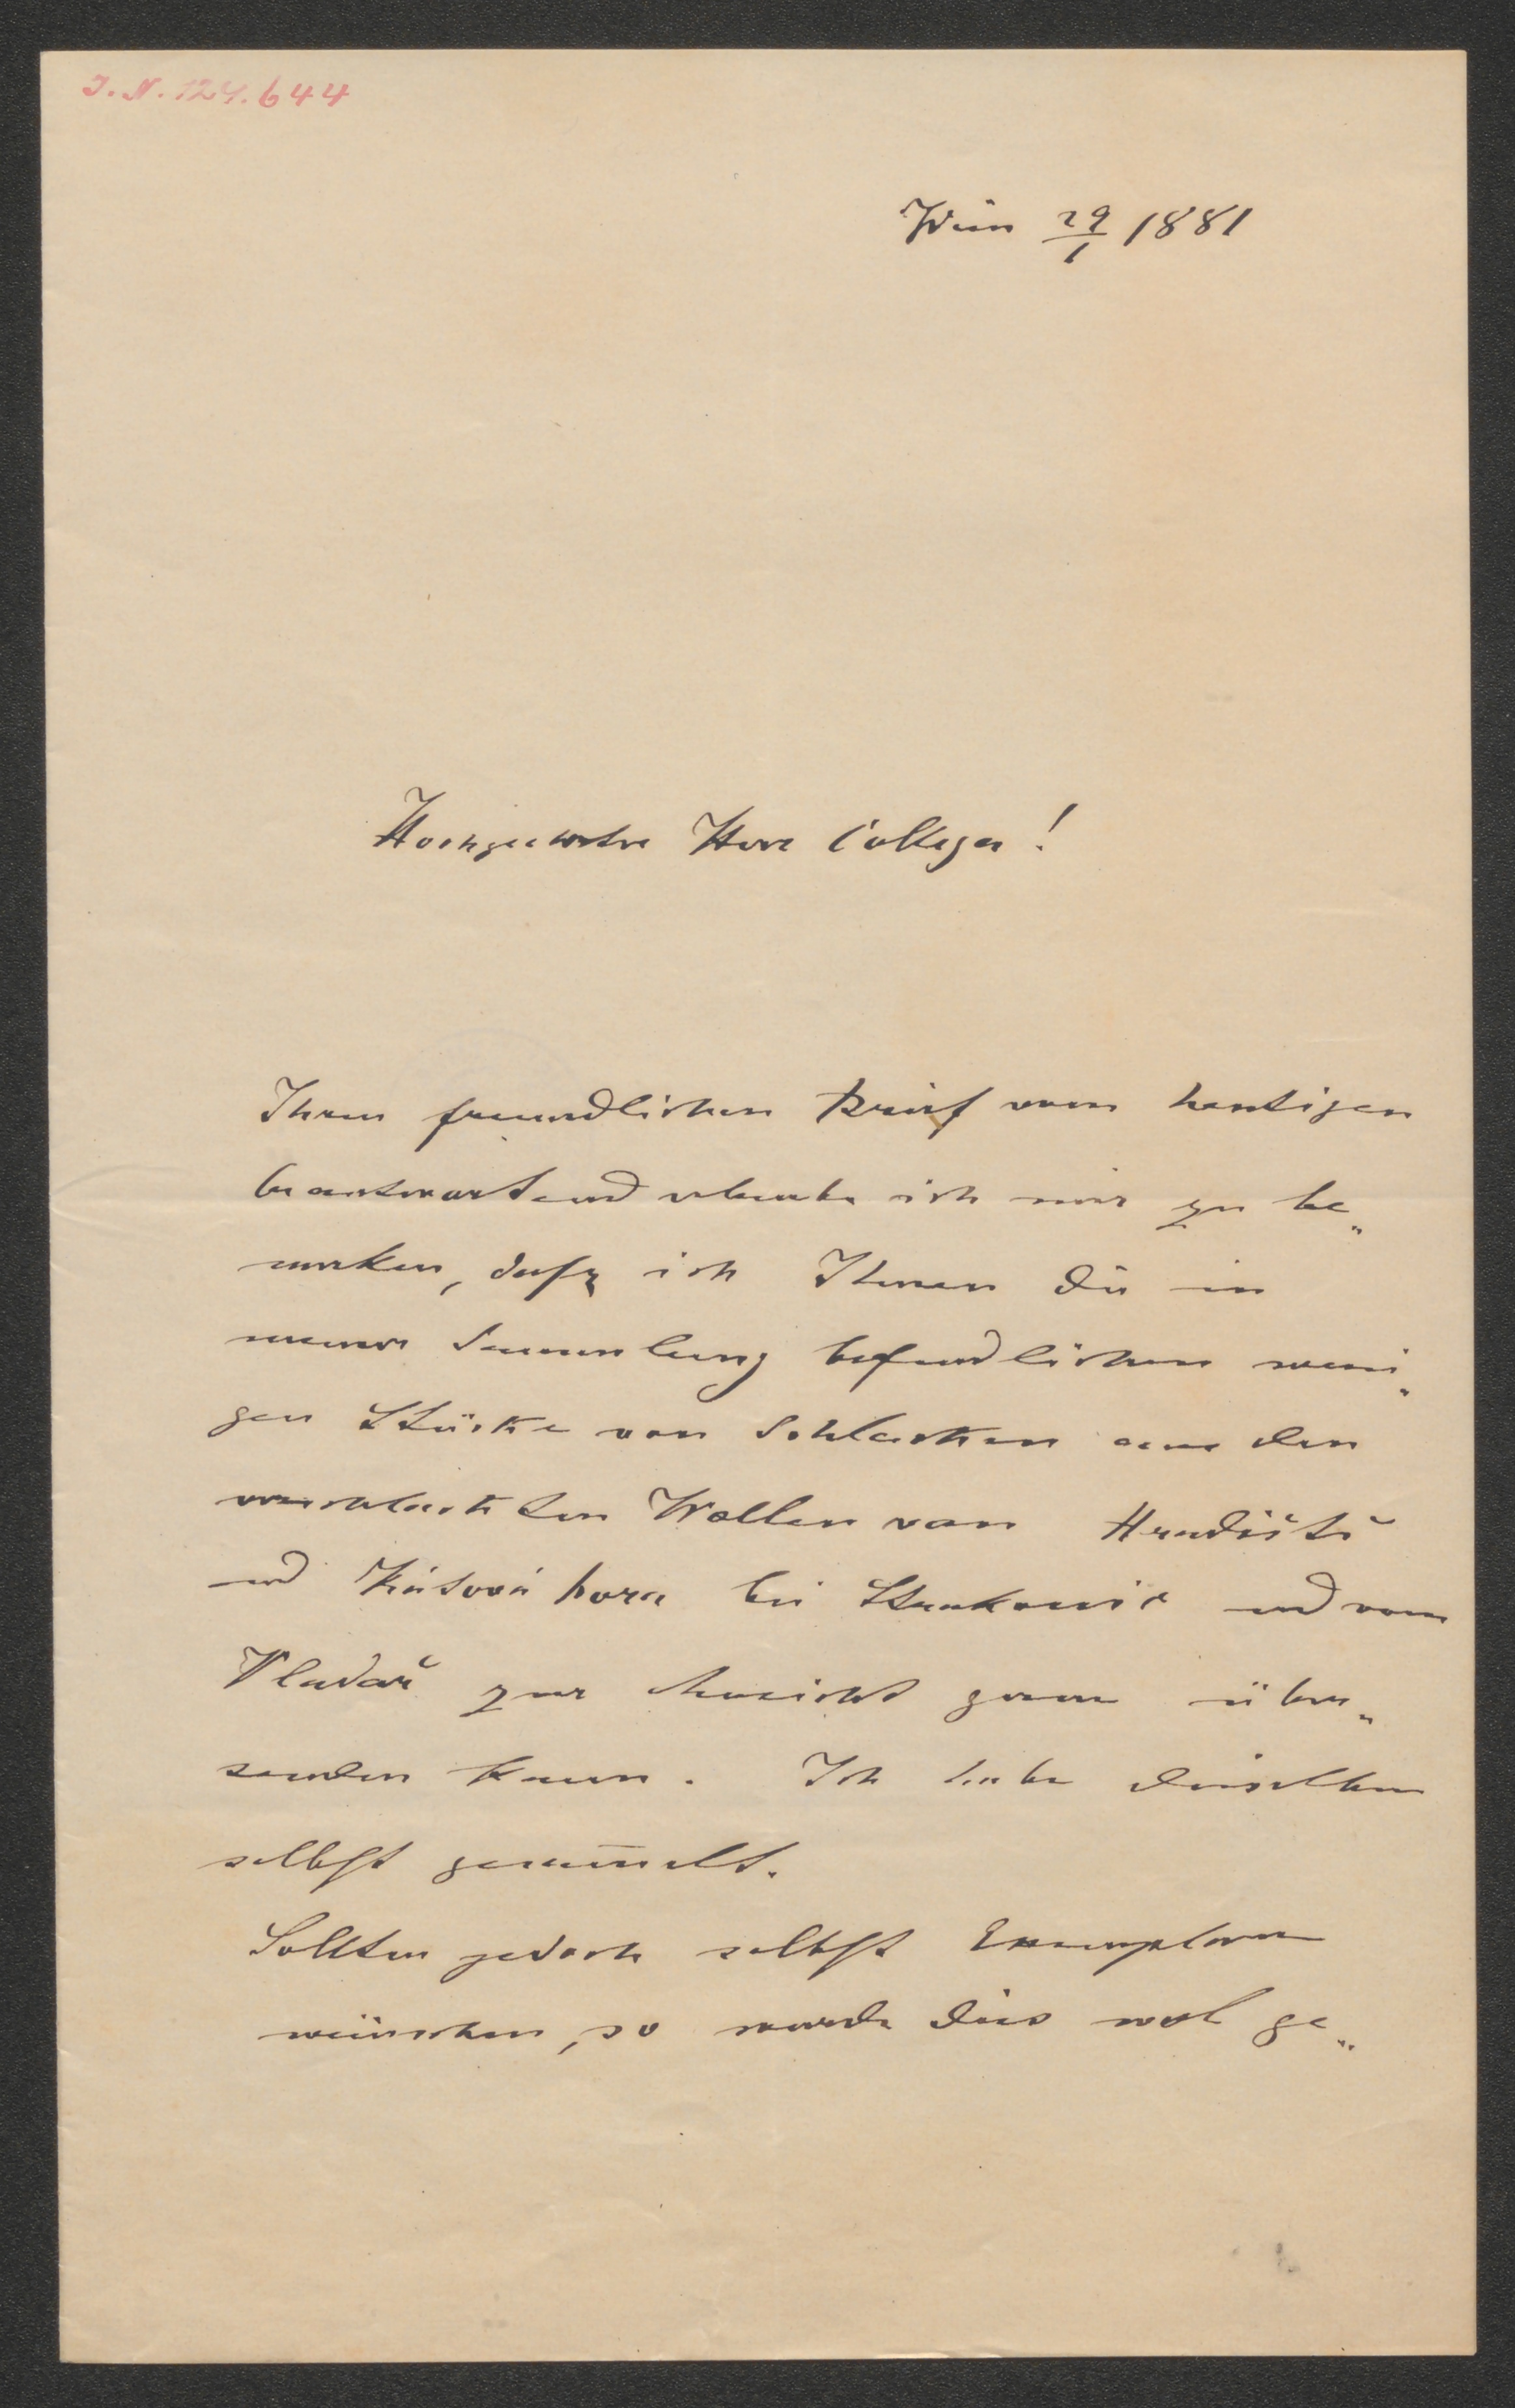 J. N. 124.644
Wien 29/1 1881
Hochgeehrter Herr College!
Ihren freundlichen Brief vom heutigen
beantwortend erlaube ich mir zu be„
merken, dafz ich Ihnen die in
meiner Sammlung befindlichen weni„
gen Stücke von Schlacken aus den
verschlackten Wällen von Hradiště
und Kátová hora bei Strakonic und vom
Vladař zur Ansicht gerne über„
senden kann. Ich habe dieselben
selbst gesam̅elt.
Sollten jedoch selbst Exemplare
wünschen, so wurde dies wol ge„